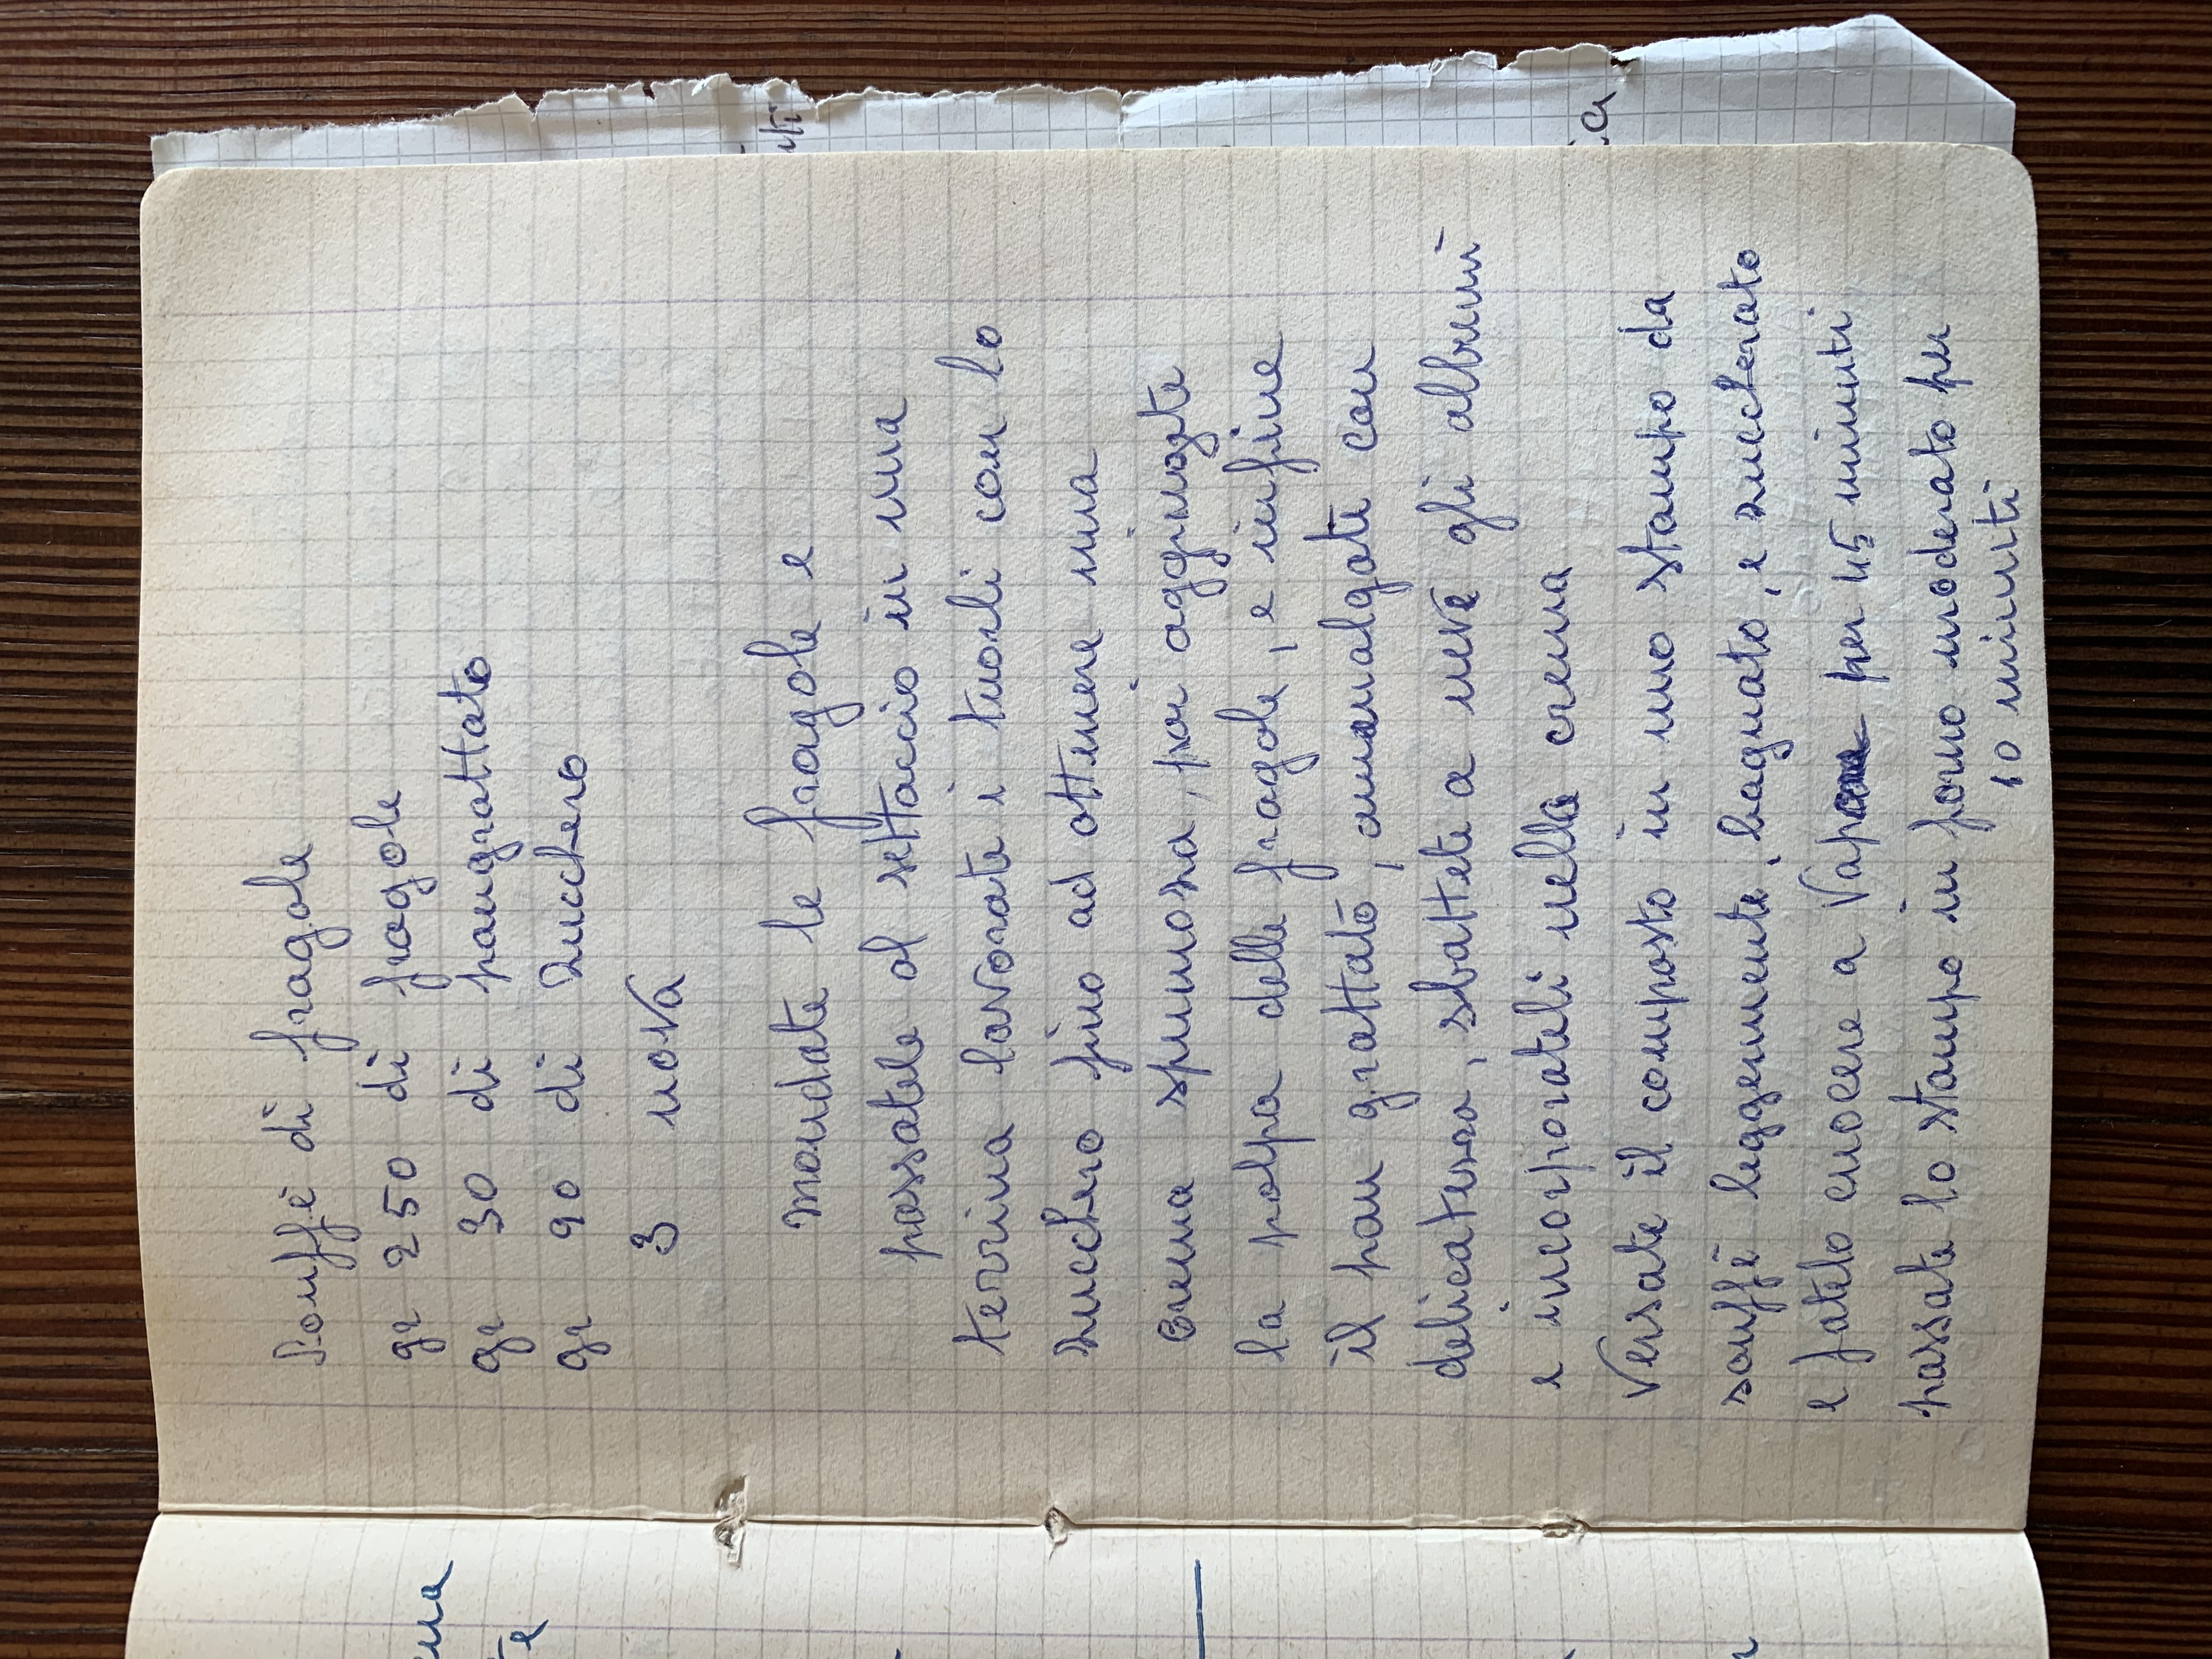 Souffè di fragole
gr 250 di fragole
gr 30 di pangrattato
gr 90 di Zucchero
3 uova
mondate le fragole e
passatele al settaccio in una
terrina lavorate i tuorli con lo
zucchero fino ad ottenere una
crema spumosa, poi aggiungete
la polpa delle fragole, e infine
il pan grattato, amamalgate con
delicatezza, sbattete a neve gli albumi
e incorporateli nella crema
Versate il composto in uno stampo da
souffè leggermente, bagnato, e zuccherato
e fatelo cuocere a Vapore per 45 minuti
passate lo stampo in forno moderato per
10 minuti